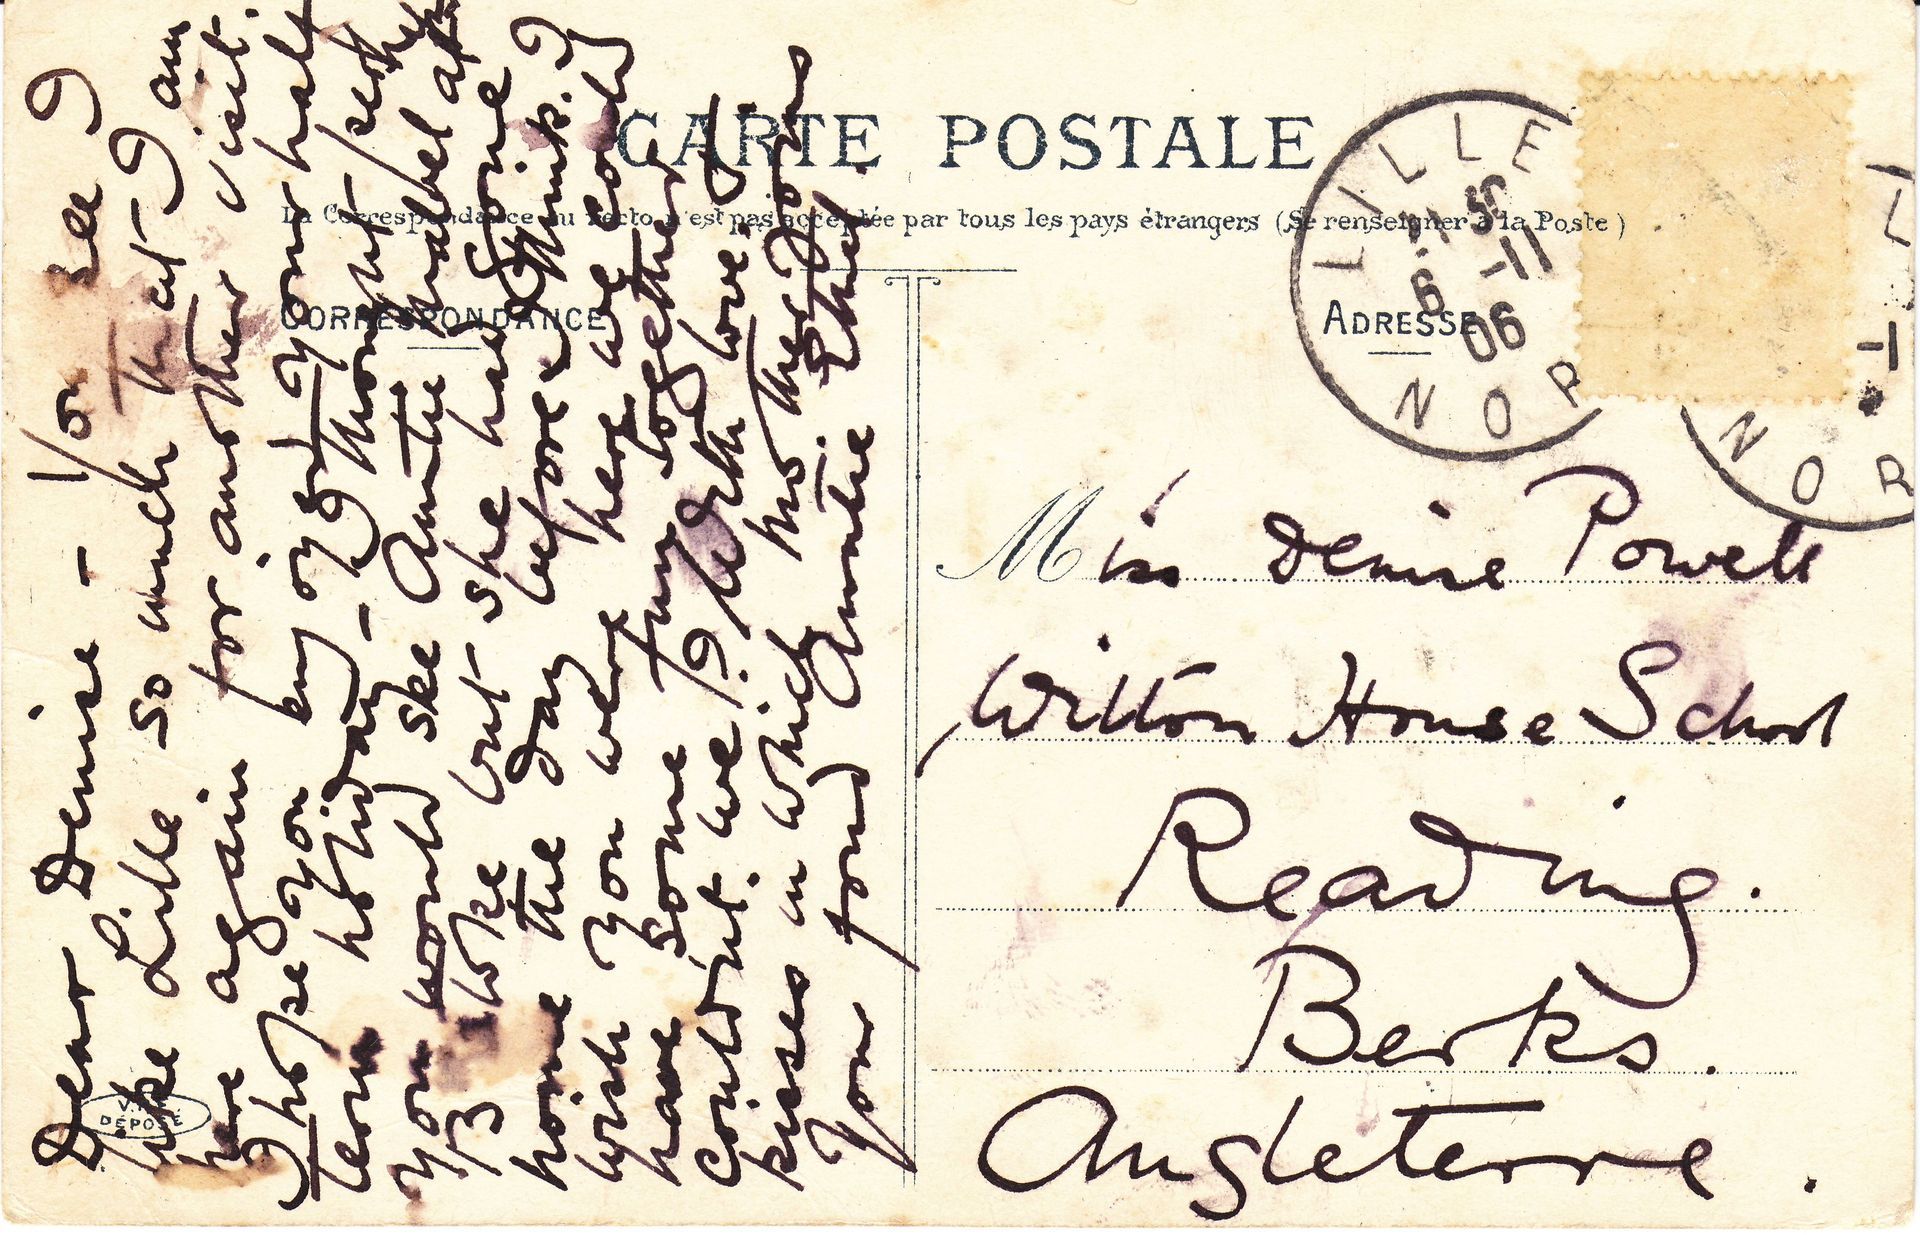 CARTE POSTALE
La Correspondance au recto n'est pas acceptée par tous les pays étrangers (Se renseigner à la Poste)
CORRESPONDANCE
ADRESSE
LILLE
11 50
6 -11
06
NOR
L
-1
NOR
Miss Denise Powell
Wilton House School
Reading.
Berks.
Angleterre.
V.P.
DÉPOSÉ
Dear Denise - You see I
like Lille so much that I am
here again for another visit.
I hope you enjoyed your half
term holiday - I thought perhaps
you would see Auntie Mabel at
B but she had gone
home the day before I think. I
wish you were here we could
have some fun together
couldn't we? With love &
kisses in which Mother joins
Your fond Auntie Ethel.